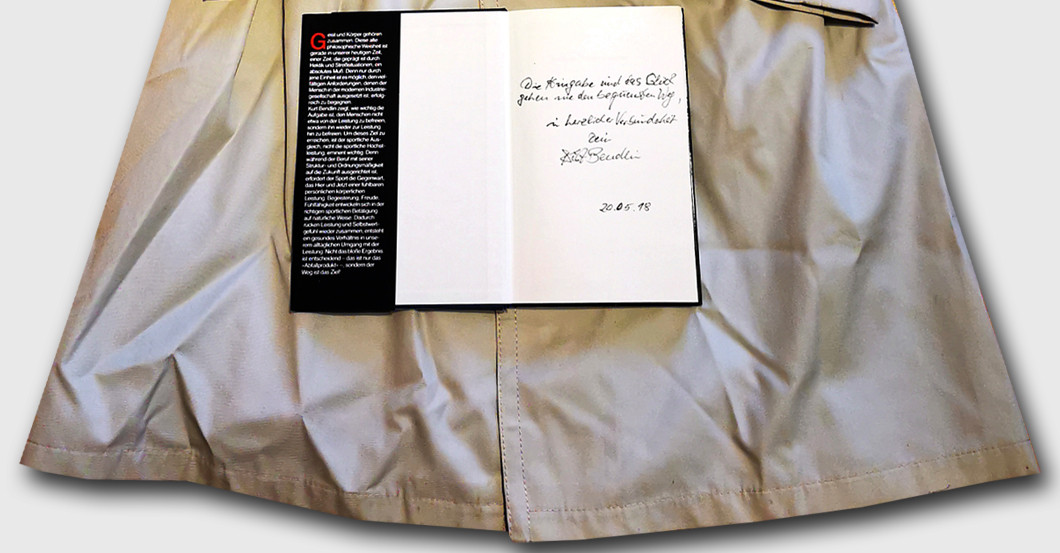 Geist und Körper gehören
zusammen. Diese alte
philosophische Weisheit ist
gerade in unserer heutigen Zeit,
einer Zeit, die geprägt ist durch
Hektik und Streßsituationen, ein
absolutes Muß. Denn nur durch
eine Einheit ist es möglich, den viel-
fältigen Anforderungen, denen der
Mensch in der modernen Industrie-
gesellschaft ausgesetzt ist, erfolg-
reich zu begegnen.
Kurt Bendlin zeigt, wie wichtig die
Aufgabe ist, den Menschen nicht
etwa von der Leistung zu befreien,
sondern ihn wieder zur Leistung
hin zu befreien. Um dieses Ziel zu
erreichen, ist der sportliche Aus-
gleich, nicht die sportliche Höchst-
leistung, eminent wichtig. Denn
während der Beruf mit seiner
Struktur- und Ordnungsmäßigkeit
auf die Zukunft ausgerichtet ist,
erfordert der Sport die Gegenwart,
das Hier und Jetzt einer fühlbaren
persönlichen körperlichen
Leistung. Begeisterung, Freude,
Fühlfähigkeit entwickeln sich in der
richtigen sportlichen Betätigung
auf natürliche Weise. Dadurch
rücken Leistung und Selbstwert-
gefühl wieder zusammen, entsteht
ein gesundes Verhältnis in unse-
rem alltäglichen Umgang mit der
Leistung. Nicht das bloße Ergebnis
ist entscheidend – das ist nur das
»Abfallprodukt« –, sondern der
Weg ist das Ziel!
Die Hingabe und das Glück
gehen nie den bequemsten Weg,
in herzlicher Verbundenheit
Dein
Kurt Bendlin
20.05.98